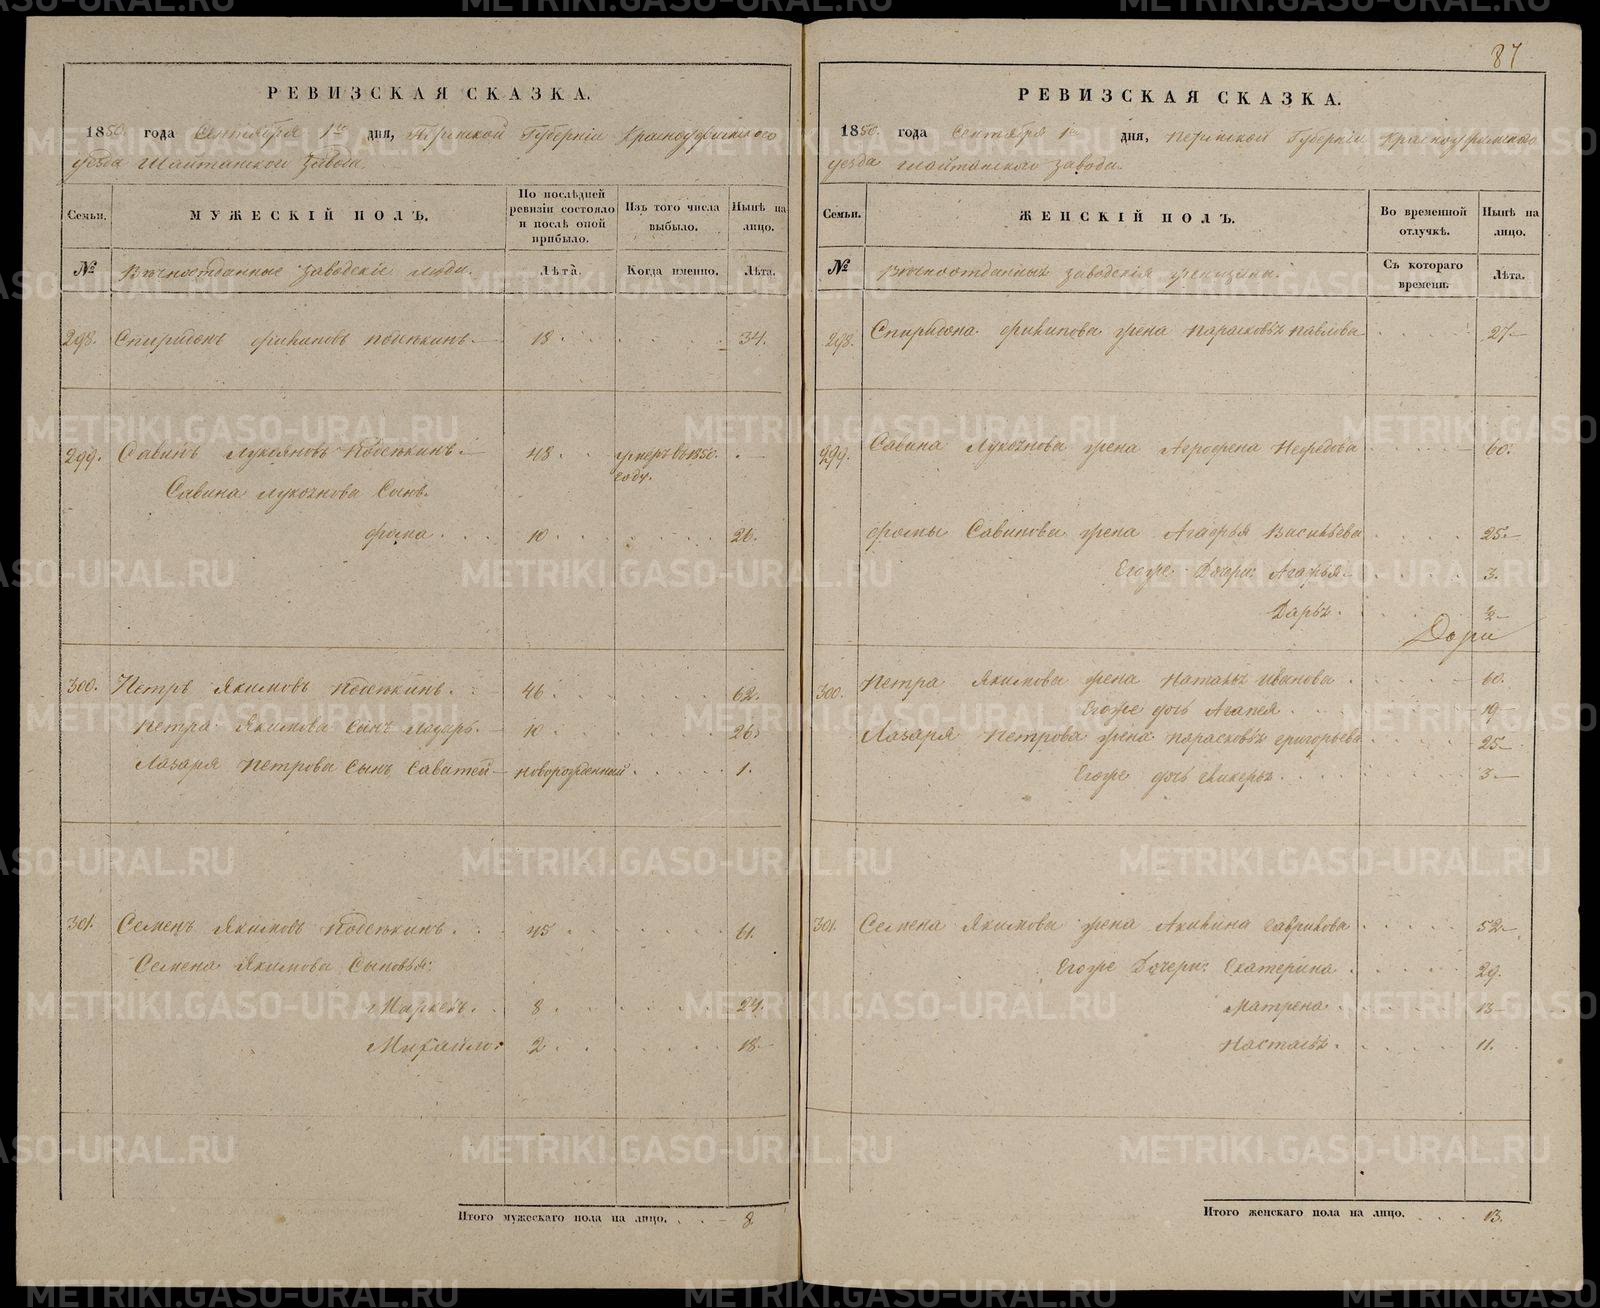 87
РЕВИЗСКАЯ СКАЗКА.
1850. года Сентября 1го дня, Пермской Губерніи Красноуфимского
уезда Шайтанского завода.
Семьи.
МУЖЕСКІЙ ПОЛЪ.
По послѣдней ревизіи состояло и послѣ оной прибыло.
Изъ того числа выбыло.
Нынѣ на лицо.
№
Вѣчноотданные заводскіе люди.
Лѣта.
Когда именно.
Лѣта.
298. Спиридонъ Филиповъ 18. 34.
299. Савинъ Лукояновъ 48 умеръ въ 1850. году.
Савина Лукоянова Сынъ.
Фома 10. 26.
300. Петръ Якимовъ 46. 62.
Петра Якимова Сынъ Лазарь 10. 26.
Лазаря Петрова Сынъ Саватей новорожденный 1.
301. Семенъ Якимовъ 45 61.
Семена Якимова Сыновья:
8 24.
Михайло 2 18
Итого мужескаго пола на лицо. 8
РЕВИЗСКАЯ СКАЗКА.
1850. года Сентября 1го дня, Пермской Губерніи Красноуфимского
уезда Шайтанского завода.
Семьи.
ЖЕНСКІЙ ПОЛЪ.
Во временной отлучкѣ.
Нынѣ на лицо.
№
заводскія женщины.
Съ котораго времени.
Лѣта.
298. Спиридона Филипова жена Парасковья Павлова 27
299. Савина Лукоянова жена Агрофена Нефедова 60.
Фомы Савинова жена Агафья Васильева 25
Егоже Дочери: Агафья 3.
Дарья. ½
300. Петра Якимова жена Наталья Иванова 60.
Егоже дочь Агапея 19
Лазаря Петрова жена Парасковья Григорьева 25
Егоже дочь Гликерья 3
301. Семена Якимова жена Акилина Гаврилова 52
Егоже Дочери: Екатерина 29.
Матрена 13
Настасья 11.
Итого женскаго пола на лицо. 13.
METRIKI.GASO-URAL.RU